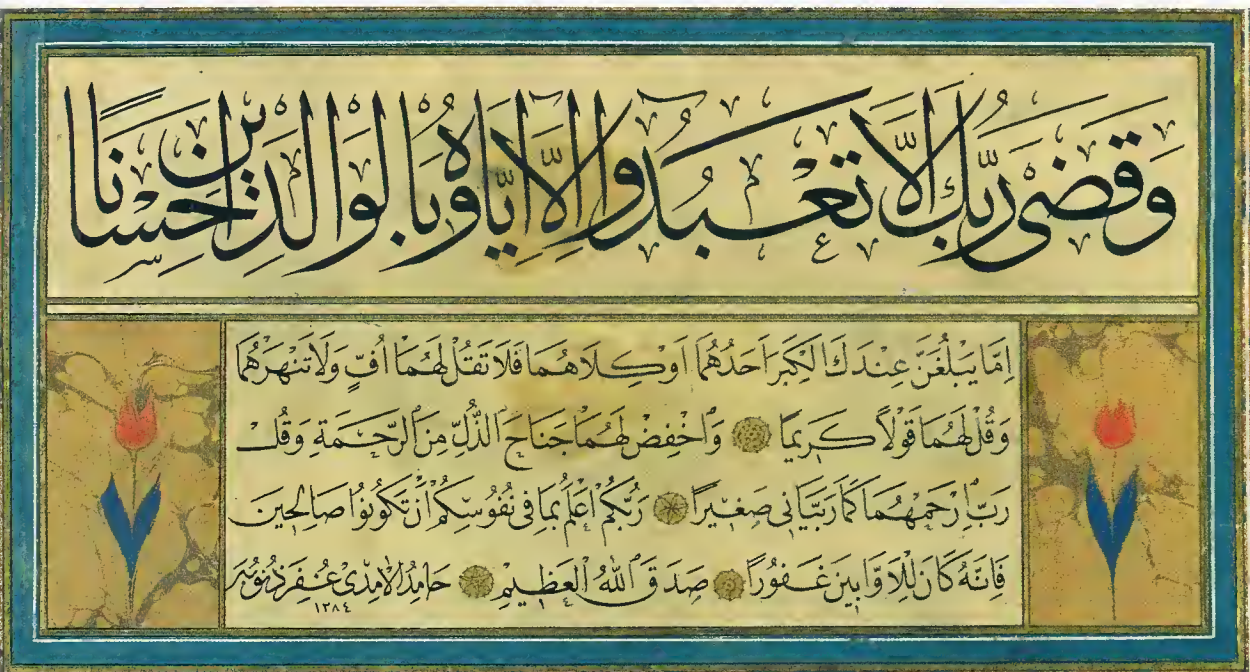 وَقَضٰى رَبُّكَ اَلَّا تَعْبُدُوا اِلَّا اِيَّاهُ وَبِالْوَالِدَيْنِ اِحْسَانًا
اِمَّا يَبْلُغَنَّ عِنْدَكَ الْكِبَرَ اَحَدُهُمَا اَوْ كِلَاهُمَا فَلَا تَقُلْ لَهُمَا اُفٍّ وَلَا تَنْهَرْهُمَا
وَقُلْ لَهُمَا قَوْلًا كَرِيمًا وَاخْفِضْ لَهُمَا جَنَاحَ الذُّلِّ مِنَ الرَّحْمَةِ وَقُلْ
رَبِّ ارْحَمْهُمَا كَمَا رَبَّيَانِى صَغِيرًا رَبُّكُمْ اَعْلَمُ بِمَا فِى نُفُوسِكُمْ اِنْ تَكُونُوا صَالِحِينَ
فَاِنَّهُ كَانَ لِلْاَوَّابِينَ غَفُورًا صَدَقَ اللّٰهُ الْعَظِيمُ حَامِدُ الْاٰمِدِى غُفِرَ ذُنُوبُهُ
١٣٨٤